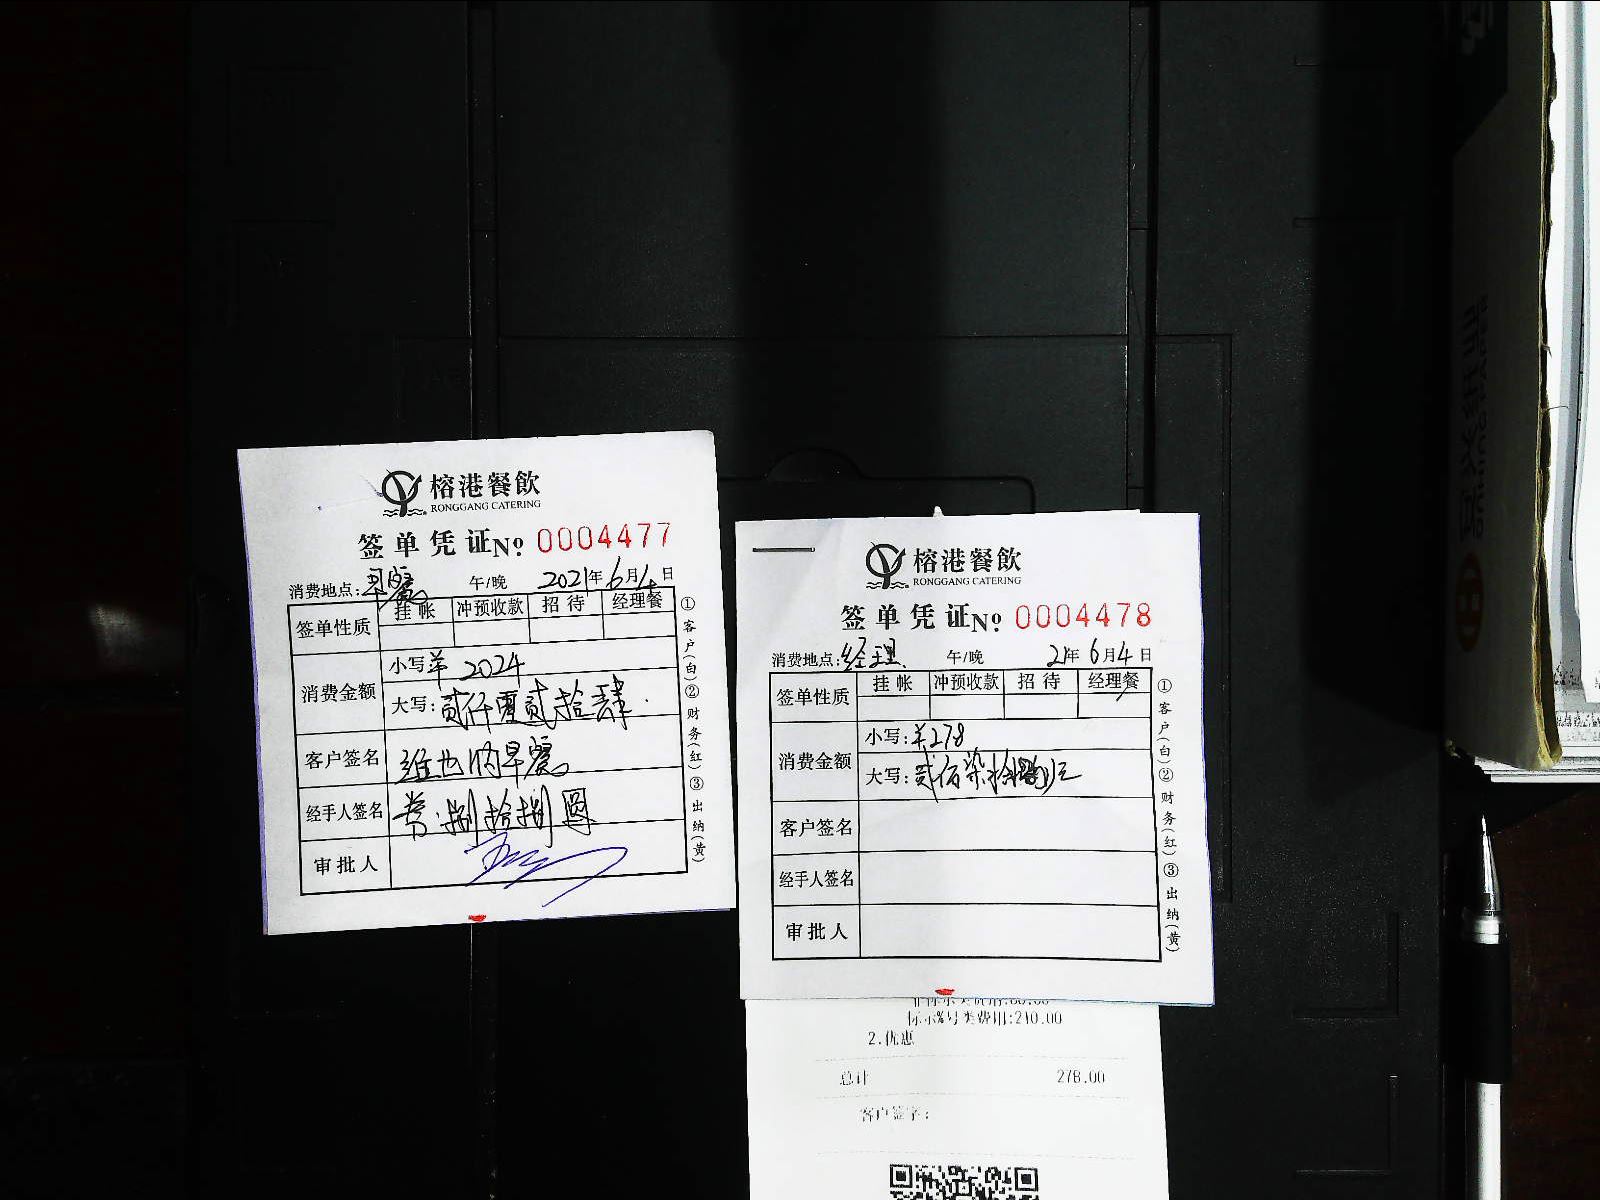 榕港餐飲
RONGGANG CATERING
签单凭证No. 0004477
消费地点:早餐 午/晚 2021年6月4日
签单性质 挂帐 冲预收款 招待 经理餐
消费金额 小写 ¥2024
大写:贰仟零贰拾肆
客户签名 维也纳早餐
经手人签名 捌拾捌圆
审批人
①客户(白)②财务(红)③出纳(黄)
榕港餐飲
RONGGANG CATERING
签单凭证No. 0004478
消费地点:经理 午/晚 21年6月4日
签单性质 挂帐 冲预收款 招待 经理餐
消费金额 小写:¥278
大写:贰佰柒拾捌元
客户签名
经手人签名
审批人
①客户(白)②财务(红)③出纳(黄)
标示%号类费用:210.00
2.优惠
总计 278.00
客户签字: